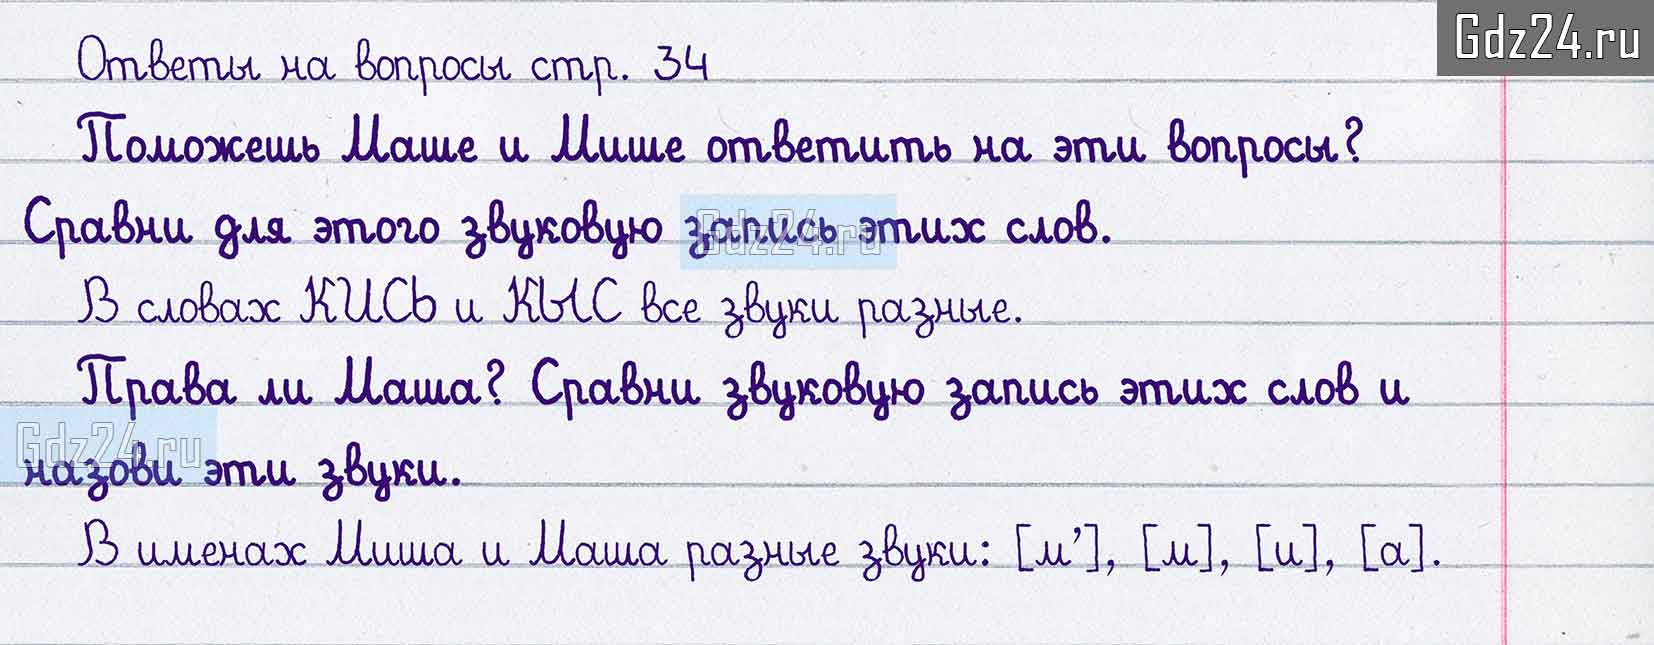 Gdz24.ru
Ответы на вопросы стр. 34
Поможешь Маше и Мише ответить на эти вопросы?
Сравни для этого звуковую запись этих слов.
Gdz24.ru
В словах КИСЬ и КЫС все звуки разные.
Права ли Маша? Сравни звуковую запись этих слов и
Gdz24.ru
назови эти звуки.
В именах Миша и Маша разные звуки: [м’], [м], [и], [а].